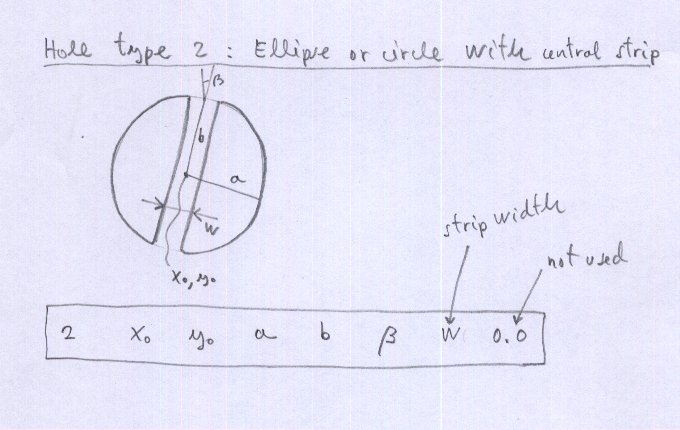 Hole type 2 : Ellipse or circle with central strip
β
b
a
w
x₀, y₀
strip width
not used
2 x₀ y₀ a b β W 0.0